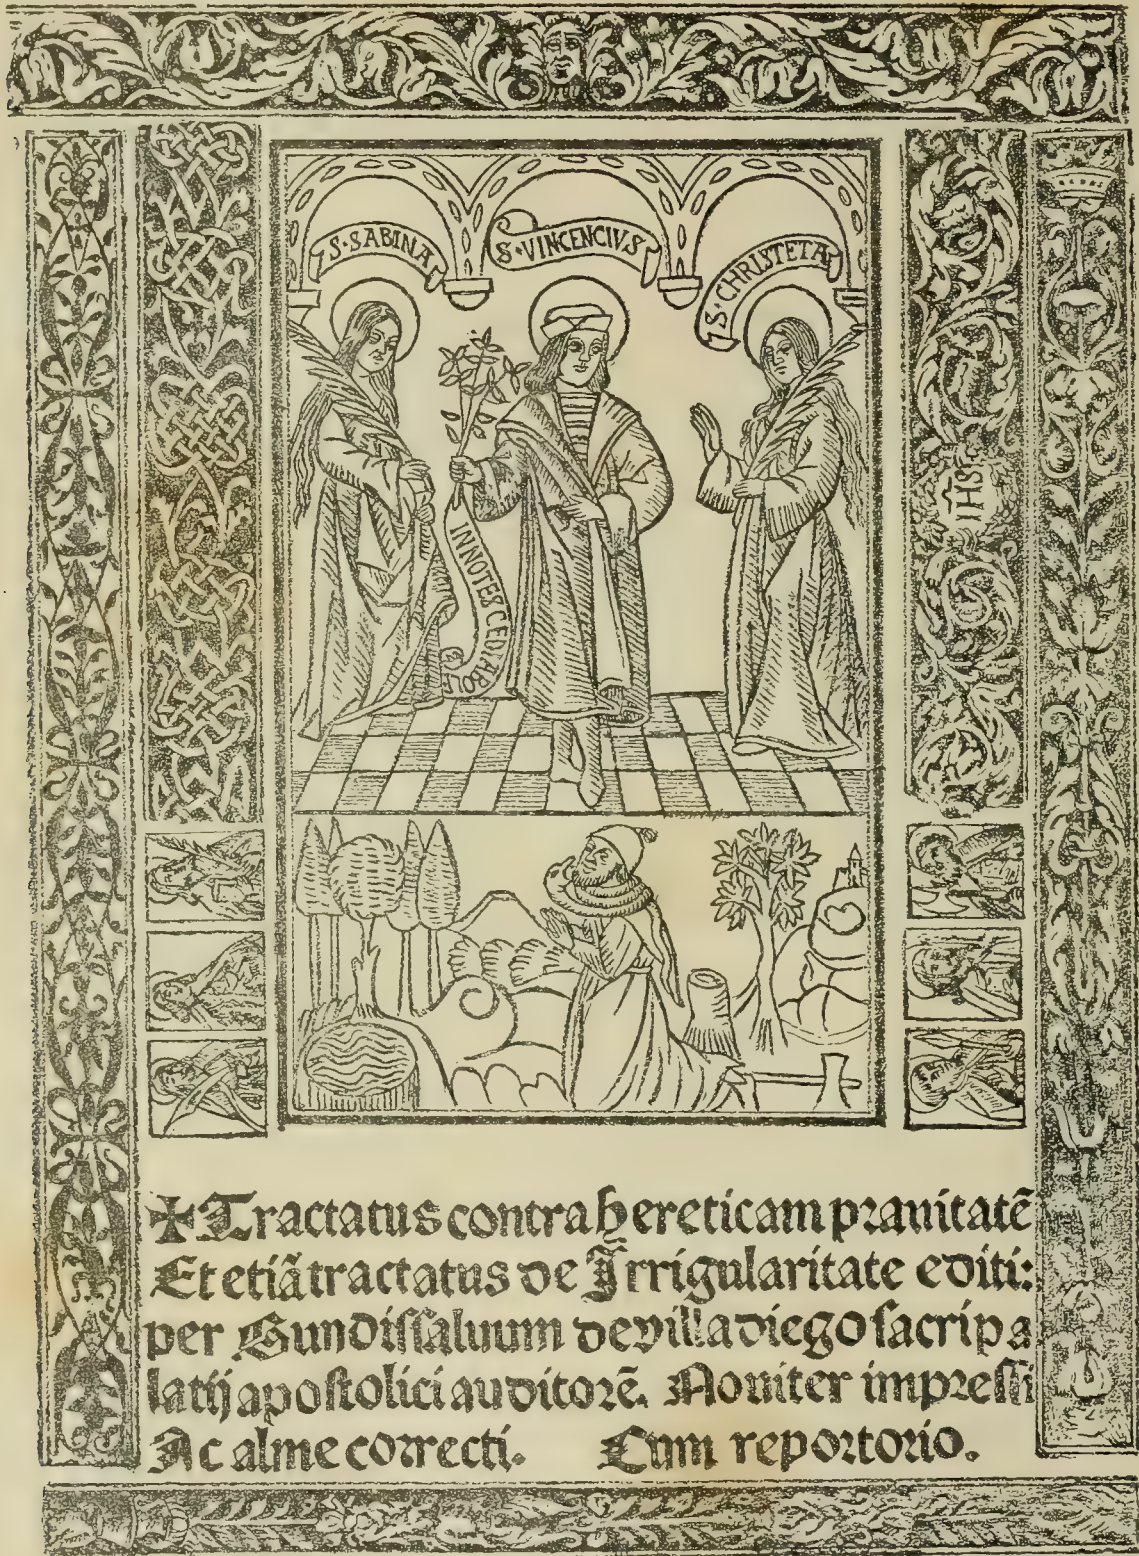 S·SABINA
S·VINCENCIVS
S·CHRISTETA
INNOTESCEVABOL
IHS
✠Tractatus contra hereticam prauitatē
Et etiā tractatus de Irrigularitate editi:
per Gundissaluum de villa diego sacri pa
latij apostolici auditorē. Nouiter impressi
Ac alme correcti. Cum reportorio.